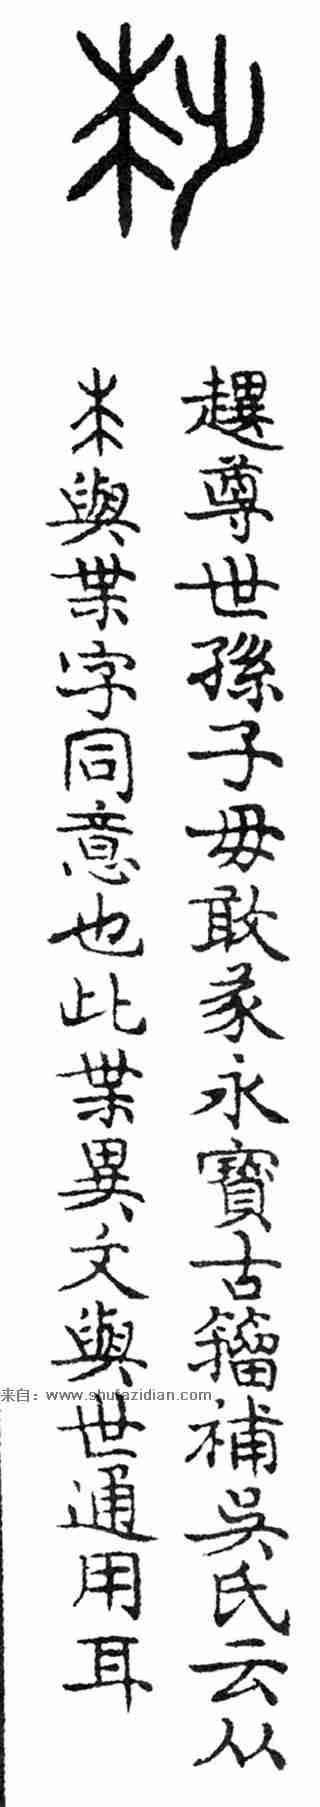 趩尊世孫子毋敢㒸永寶古籀補吳氏云从
木與枼字同意也此枼異文與世通用耳
来自：www.shufazidian.com